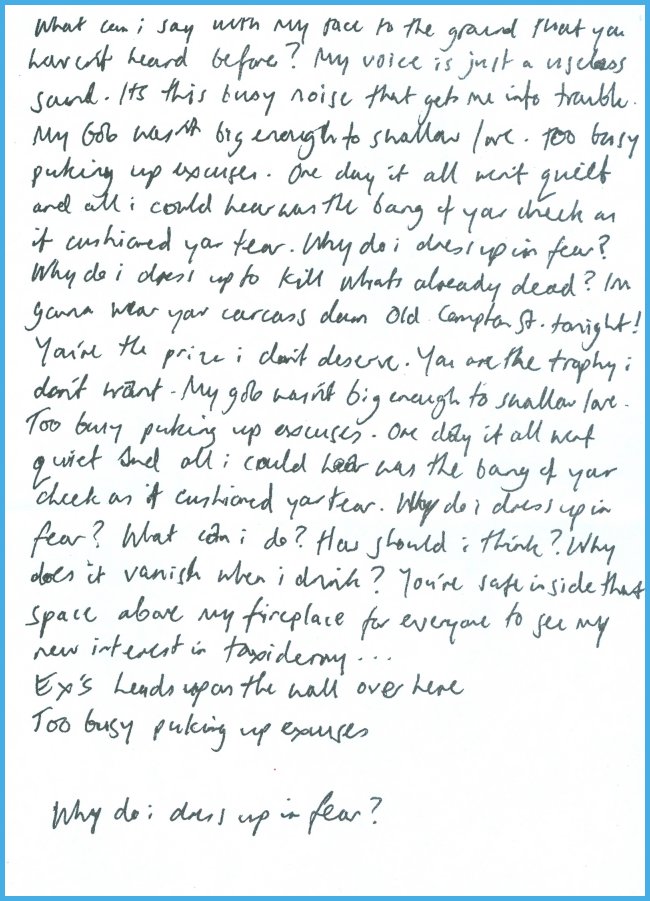 What can i say with my face to the ground that you
haven't heard before? My voice is just a useless
sound. Its this busy noise that gets me into trouble.
My Gob wasn't big enough to swallow love. Too busy
puking up excuses. One day it all went quiet
and all i could hear was the bang of your cheek as
it cushioned your tear. Why do i dress up in fear?
Why do i dress up to kill whats already dead? Im
gonna wear your carcass down Old Compton St. tonight!
You're the prize i don't deserve. You are the trophy i
don't want. My gob wasn't big enough to swallow love.
Too busy puking up excuses. One day it all went
quiet and all i could hear was the bang of your
cheek as it cushioned your tear. Why do i dress up in
fear? What can i do? How should i think? Why
does it vanish when i drink? You're safe inside that
space above my fireplace for everyone to see my
new interest in taxidermy...
Ex's heads up on the wall over here
Too busy puking up excuses
Why do i dress up in fear?